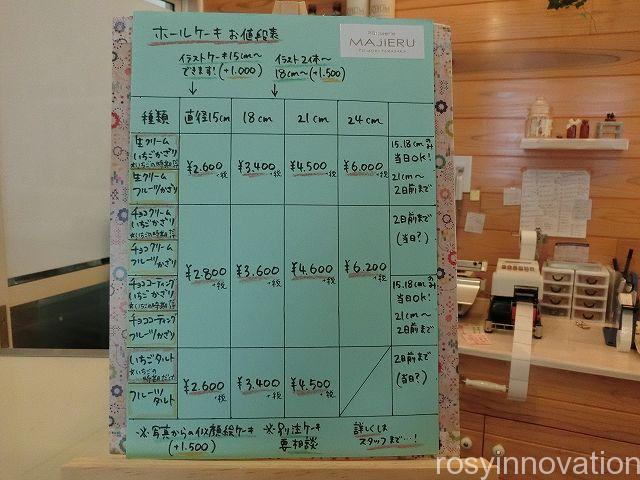 ホールケーキ お値段表
Pâtisserie
MAJIERU
イラストケーキ15cm〜
できます!(+1.000)
イラスト2体〜
18cm〜(+1.500)
種類 直径15cm 18cm 21cm 24cm
生クリーム
いちごかざり
生クリーム
フルーツかざり
¥2.600 +税 ¥3.400 +税 ¥4.500 +税 ¥6.000 +税
15.18cmのみ
当日OK!
21cm〜
2日前まで
チョコクリーム
いちごかざり
チョコクリーム
フルーツかざり
2日前まで
(当日?)
チョココーティング
いちごかざり
チョココーティング
フルーツかざり
¥2.800 +税 ¥3.600 +税 ¥4.600 +税 ¥6.200 +税
15.18cmのみ
当日OK!
21cm〜
2日前まで
いちごタルト
※いちごの
時期だけ
フルーツ
タルト
¥2.600 +税 ¥3.400 +税 ¥4.500 +税
2日前まで
(当日?)
※写真からの似顔絵ケーキ
(+1.500)
※別注ケーキ
要相談
詳しくは
スタッフまで…!
rosyinnovation